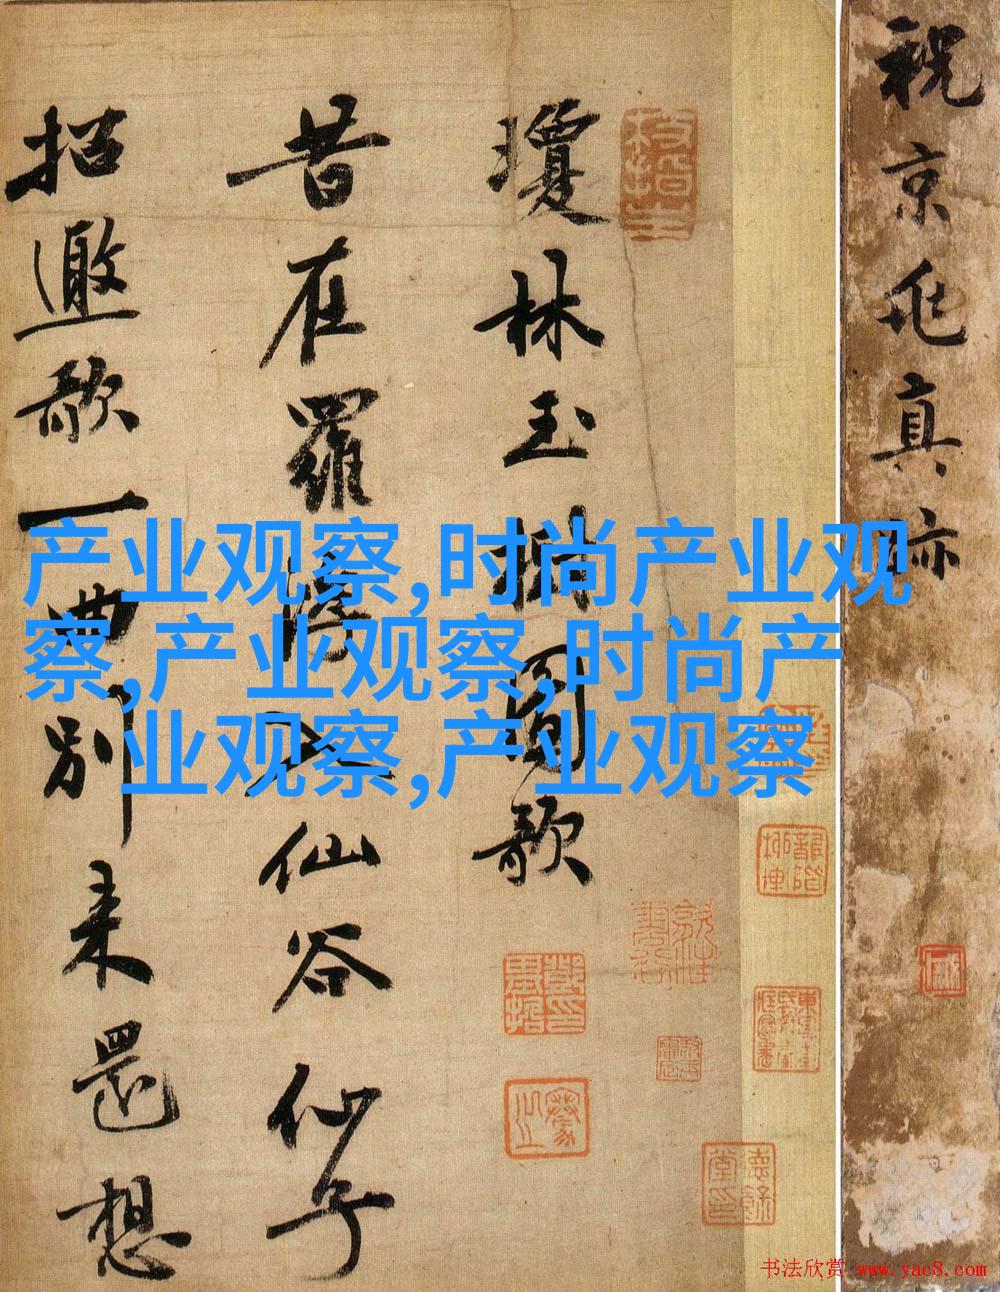 祝京兆真迹
瓊林玉樹圖歌
昔在羅浮入仙谷仙子
招邀歌一曲別來還想
产业观察,时尚产业观
察,产业观察,时尚产
业观察,产业观察
书法欣赏 www.yac8.com